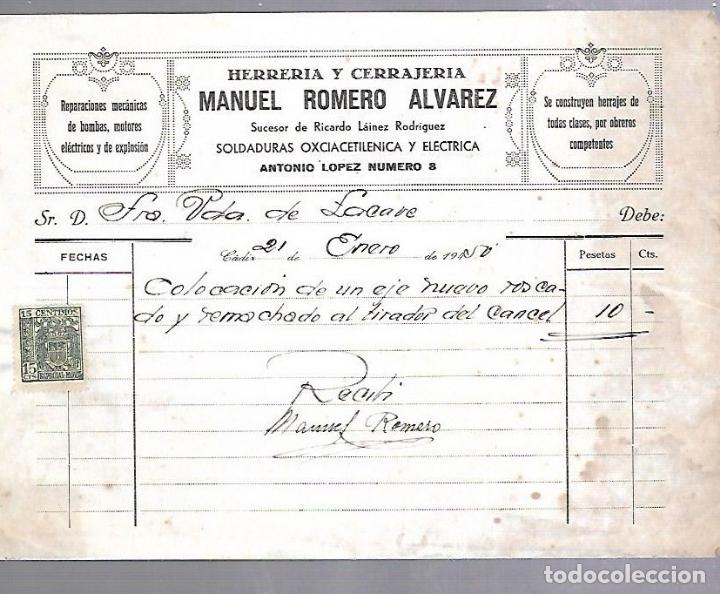 HERRERIA Y CERRAJERIA
MANUEL ROMERO ALVAREZ
Sucesor de Ricardo Láinez Rodríguez
SOLDADURAS OXCIACETILENICA Y ELECTRICA
ANTONIO LOPEZ NUMERO 8
Reparaciones mecánicas
de bombas, motores
eléctricos y de explosión
Se construyen herrajes de
todas clases, por obreros
competentes
Sr. D. Fra. Vda. de Lacave Debe:
FECHAS
Cádiz 21 de Enero de 1950
Pesetas Cts.
Colocación de un eje nuevo rosca-
do y remachado al tirador del Cancel 10 -
15 CENTIMOS
15
ESPECIAL MOVIL
Recibi
Manuel Romero
todocoleccion.net